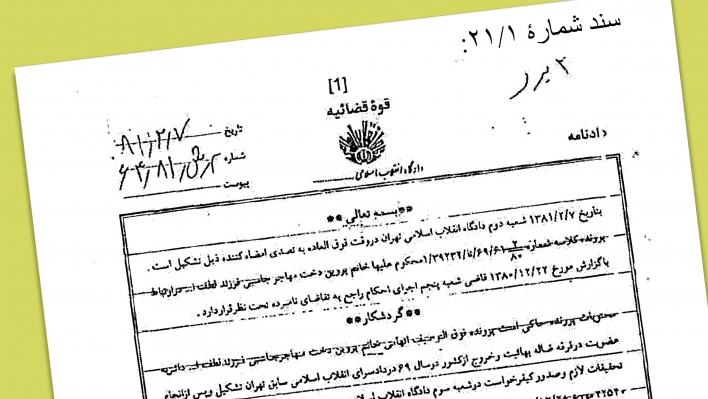 سند شمارهٔ ۲۱/۱:
[1]
قوهٔ قضائیه
تاریخ ۸۱/۲/۷
شماره
پیوست
دادگاه انقلاب اسلامی
دادنامه
**بسمه تعالی**
بتاریخ ۱۳۸۱/۲/۷ شعبه دوم دادگاه انقلاب اسلامی تهران دروقت فوق العاده به تصدی امضاء کننده ذیل تشکیل است .
پرونده کلاسه شماره محکوم علیها خانم پروین دخت مهاجر جاسبی فرزند لطف اله درارتباط
باگزارش مورخ ۱۳۸۰/۱۲/۲۲ قاضی شعبه پنجم اجرای احکام راجع به تقاضای نامبرده تحت نظرقراردارد .
**گردشکار**
محتویات پرونده حاکی است پرونده فوق التوصیف اتهامی خانم پروین دخت مهاجرجاسبی فرزند لطف اله دائربه
عضویت درفرقه ضاله بهائیت وخروج ازکشور درسال ۶۹ دردادسرای انقلاب اسلامی سابق تهران تشکیل وپس ازانجام
تحقیقات لازم وصدور کیفرخواست درشعبه سوم دادگاه انقلاب